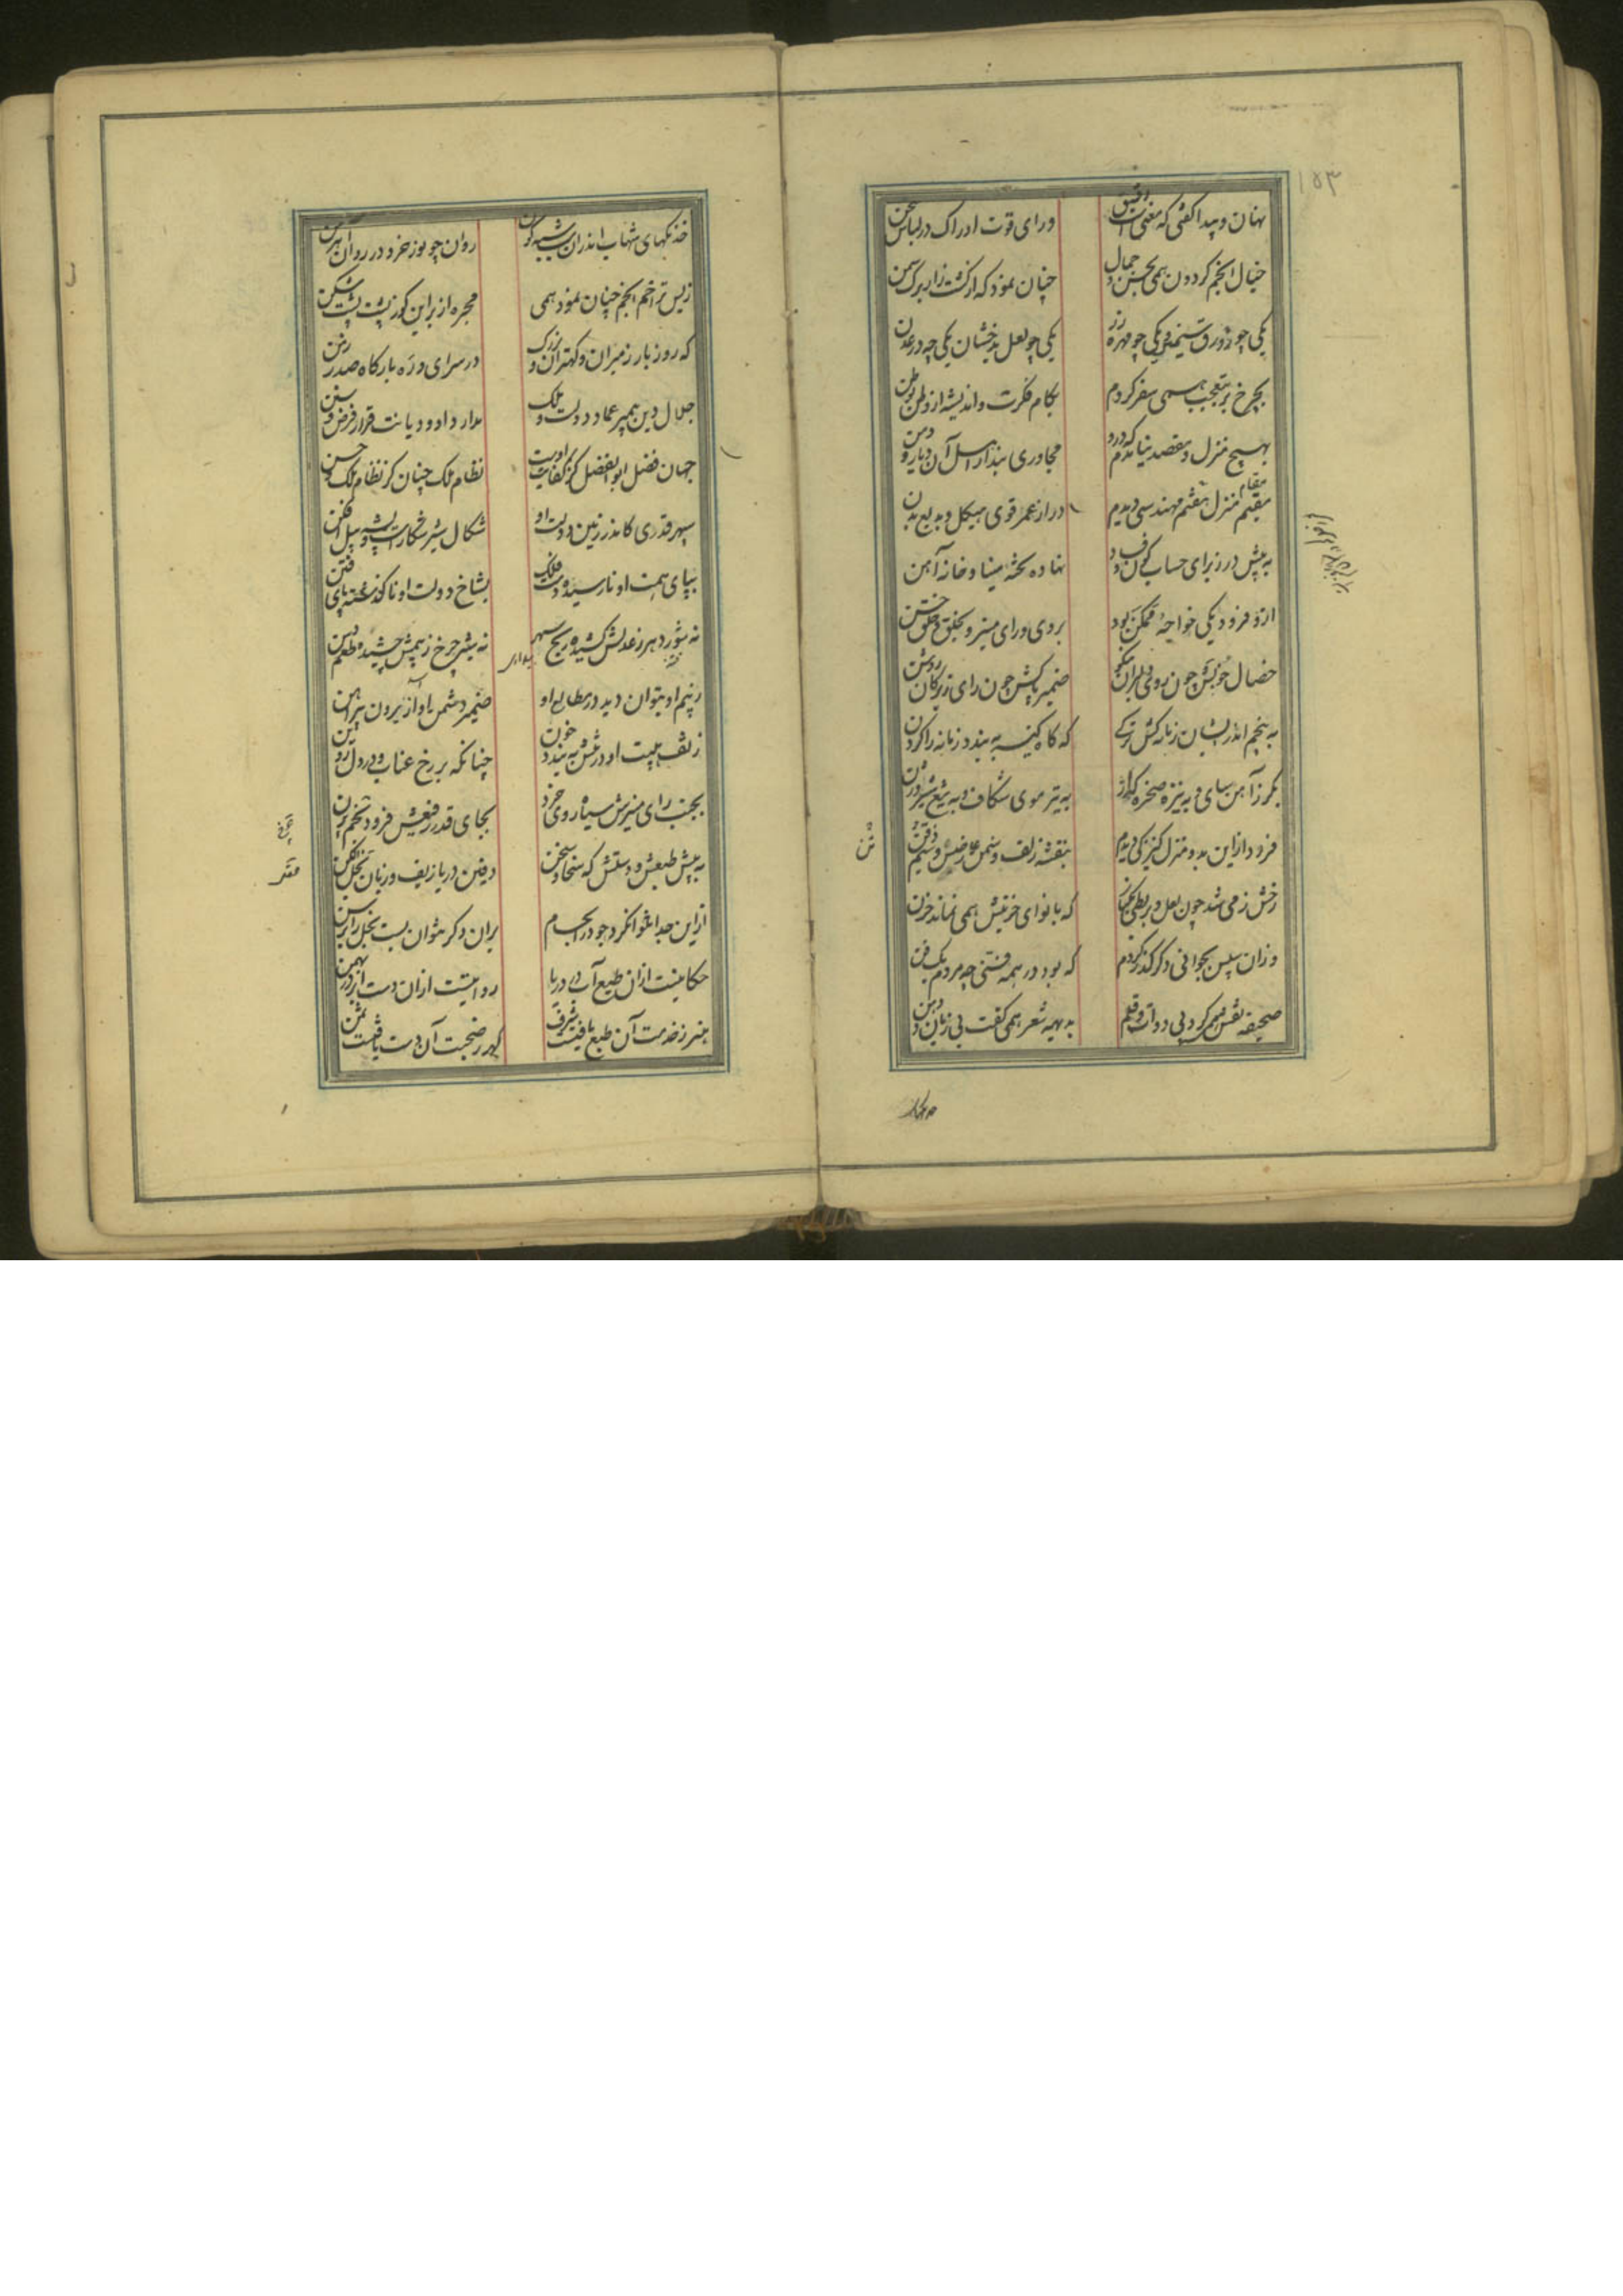 ۱۵۳
نهان و پیدا گفتی که معنی است دقیق ورای قوت ادراک در لباس سخن
خیال انجم گردون همی بحسن و جمال چنان نمود که از کشت زار برک سمن
یکی چو زورق سیمین یکی چو مهره زر یکی چو لعل بدخشان یکی چه در عدن
بچرخ بر بتعجب همی سفر کردم بکام فکرت و اندیشه از وطن بوطن
بهیچ منزل و مقصد نیامدم که درو مجاوری بند از اهل آن دیار و دمن
مقیم منزل هفتم مهندسی دیدم دراز عمر قوی هیکل و بدیع بدن
به پیش در ز برای حساب کون و فساد نهاده تخته مینا و خانه آهن
ازو فرود یکی خواجه ممکن بود بروی و رای منیر و بخلق و خلق حسن
خصال خوبش چون روی دلبران نیکو ضمیر پاکش چون رای زیرکان روشن
به پنجم اندر ایشان زمانه کش ترکی که گاه کینه به بندد زمانه را گردن
بگرز آهن سای و به نیزه صخره گذار به تیر موی شکاف و به تیغ شیر اوژن
فرود از این بدو منزل کنیزکی دیدم بنفشه زلف و سمن عارضین و سیم ذقن
رخش ز می شد چون لعل و بربطی بکنار که با نوای حزینش همی نماند حزن
وزان سپس بجوانی دگر گذر کردم که بود در همه فنی چه مردم یک فن
صحیفه نقش همی کرد بی دوات و قلم بدیهه شعر همی گفت بی زبان و دهن
خدنگهای شهاب اندران شب شبه گون روان چو نور خرد در روان اهرمن
ز بس تراحم انجم چنان نمود همی مجره از بر این کوژ پشت پشت شکن
که روز بار ز میران و مهتران بزرگ در سرای و ره بارگاه صدر زمن
جلال دین پیمبر عماد دولت و ملک مدار داد و دیانت قرار فرض و سنن
جهان فضل ابوالفضل کز کفایت اوست نظام ملک چنان کز نظام ملک حسن
سپهر قدری کاندر زمین دولت او شکال شیر شکار است و پشه پیل افکن
بپای همت او نارسیده دست فلک بشاخ دولت او ناگذشته پای فتن
ضمیر دشمن او از برون پیراهن
چنانکه بر رخ عناب و در دل روین
بجنب رای منیرش سیاه روی خرد بجای قدر رفیعش فرود نجم پرن
به پیش طبعش و دستش که سخا و سخن
از این جدا نتوان کرد جود را بحسام بران دگر نتوان بست بخل را برسن
حکایتیست از ان طبع آب در دریا روایتیست از ان دست ابر در بهمن
هنر ز خدمت آن طبع یافتست شرف گهر ز صحبت آن دست یافتست ثمن